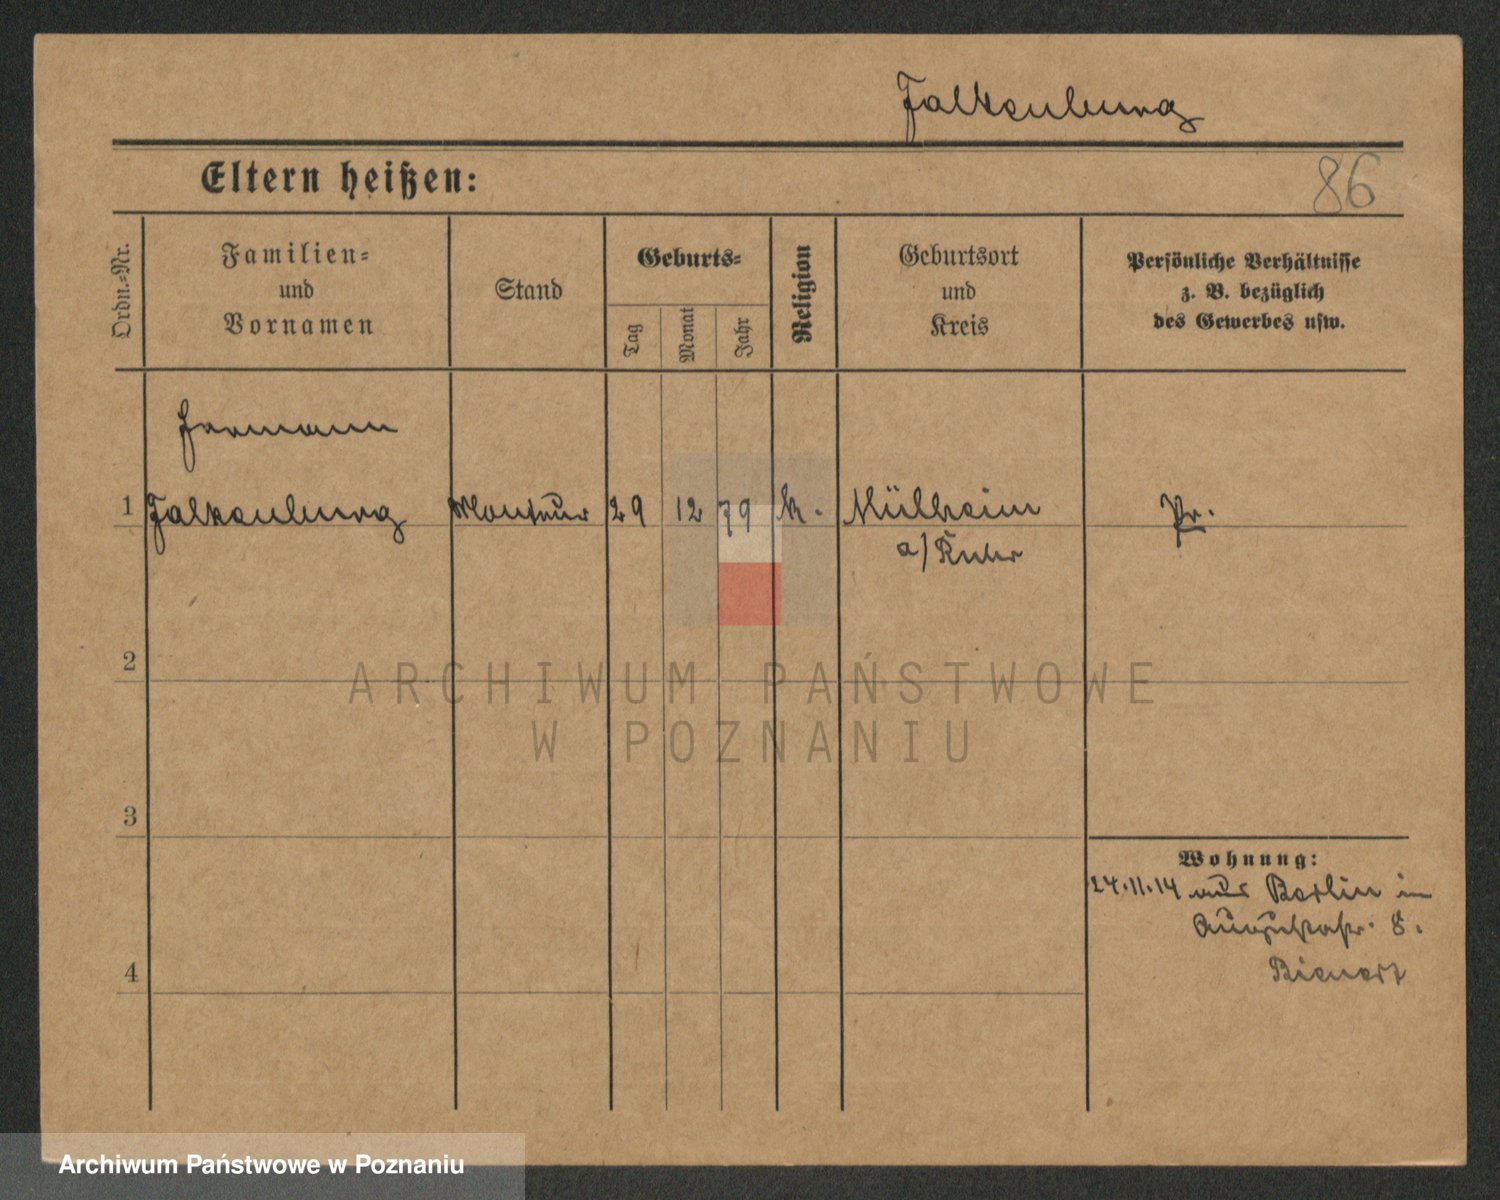 Falkenburg
Eltern heißen:
86
Ordn.-Nr.
Familien-
und
Vornamen
Stand
Geburts-
Tag
Monat
Jahr
Religion
Geburtsort
und
Kreis
Persönliche Verhältnisse
z. B. bezüglich
des Gewerbes usw.
Hermann
1 Falkenburg Monteur 29 12 79 k. Mülheim Pr.
a/Ruhr
2
ARCHIWUM PAŃSTWOWE
W POZNANIU
3
Wohnung:
24.11.14 aus Berlin in
Augustastr. 8.
Bienert
4
Archiwum Państwowe w Poznaniu